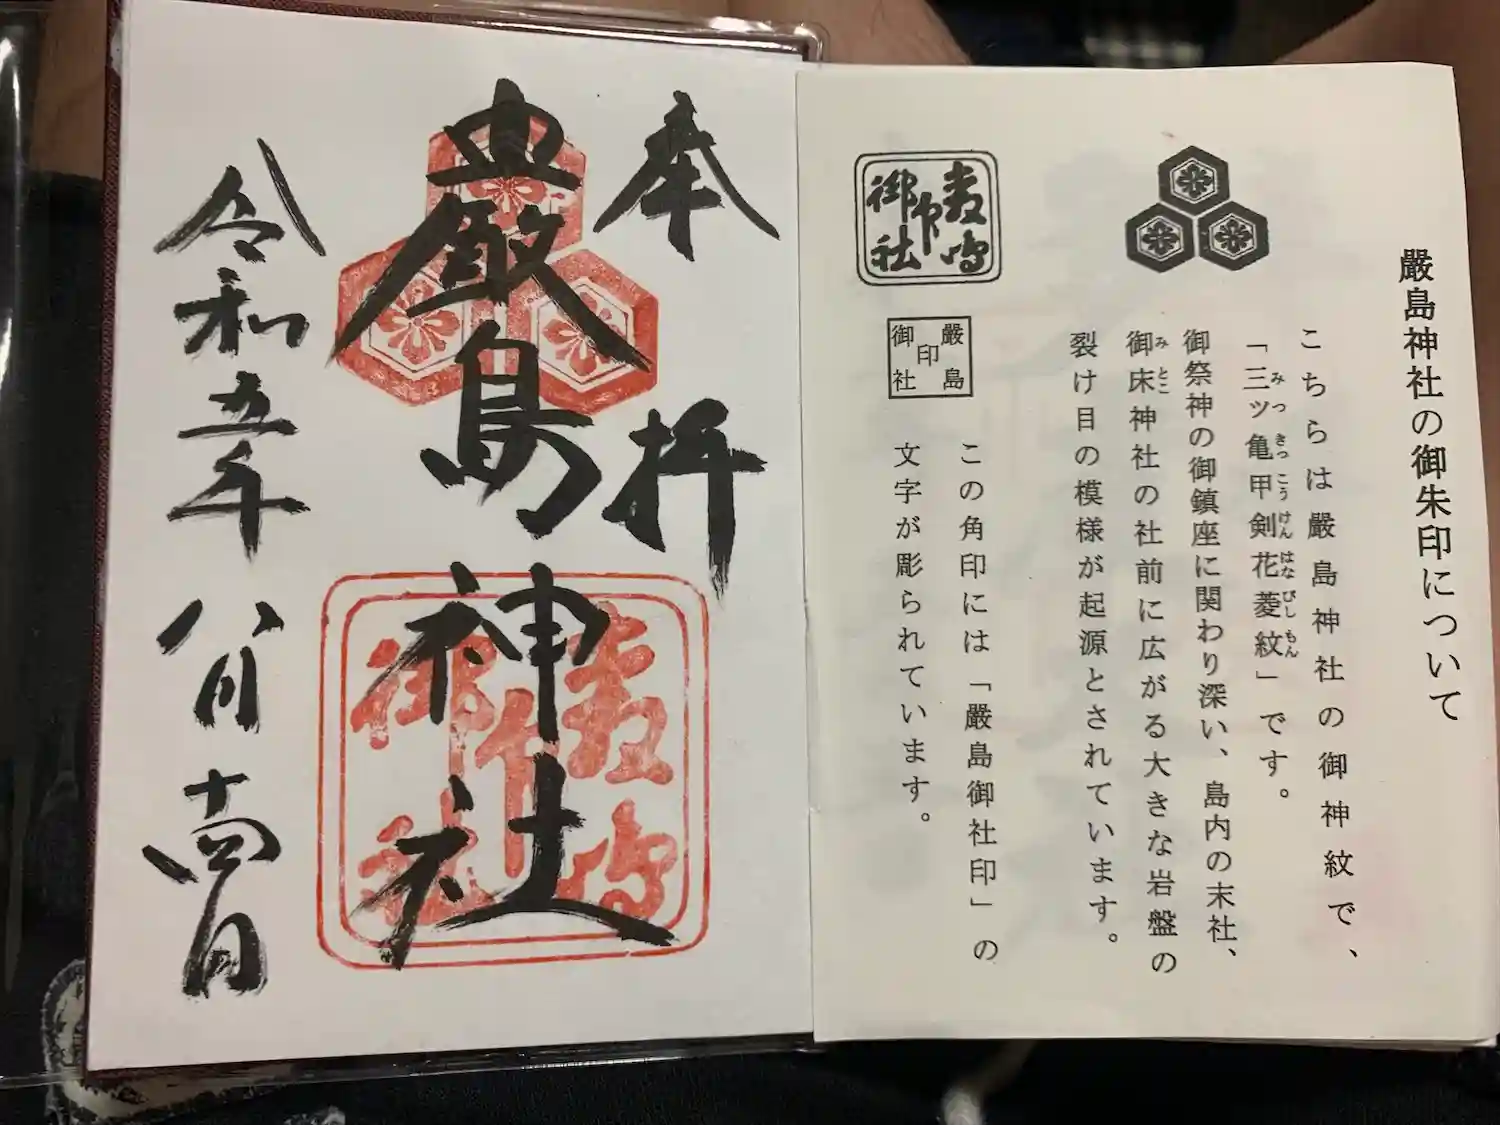 嚴島神社の御朱印について
こちらは嚴島神社の御神紋で、
「三ツ亀甲剣花菱紋」です。
みつきっこうけんはなびしもん
御祭神の御鎮座に関わり深い、島内の末社、
御床神社の社前に広がる大きな岩盤の
みとこ
裂け目の模様が起源とされています。
嚴島
印
御社
嚴島
印
御社
この角印には「嚴島御社印」の
文字が彫られています。
奉拝
嚴島神社
嚴島
印
御社
令和五年八月十四日